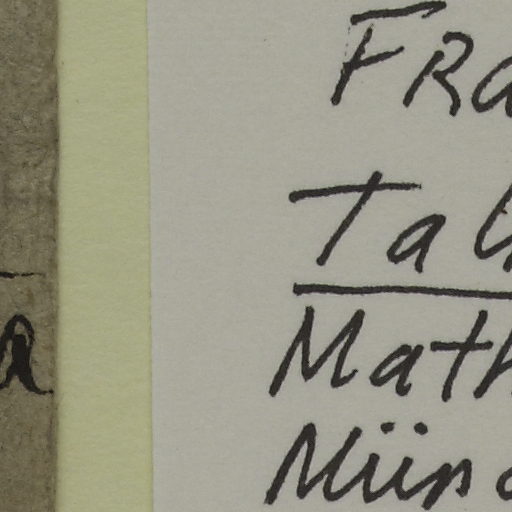 FRa
Tal
Math
Münc
a